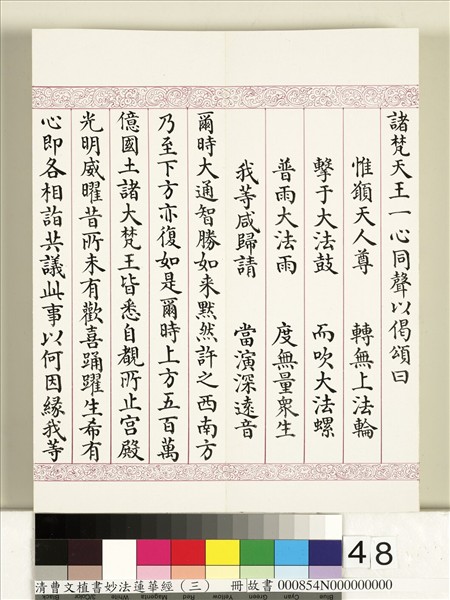 諸梵天王一心同聲以偈頌曰
惟願天人尊 轉無上法輪
擊于大法鼓 而吹大法螺
普雨大法雨 度無量眾生
我等咸歸請 當演深遠音
爾時大通智勝如来默然許之西南方
乃至下方亦復如是爾時上方五百萬
億國土諸大梵王皆悉自覩所止宮殿
光明威曜昔所未有歡喜踊躍生希有
心即各相詣共議此事以何因緣我等
48
清曹文植書妙法蓮華經(三) 冊 故書 000854N000000000
Black 3/Color White Magenta Red Yellow Green Cyan Blue